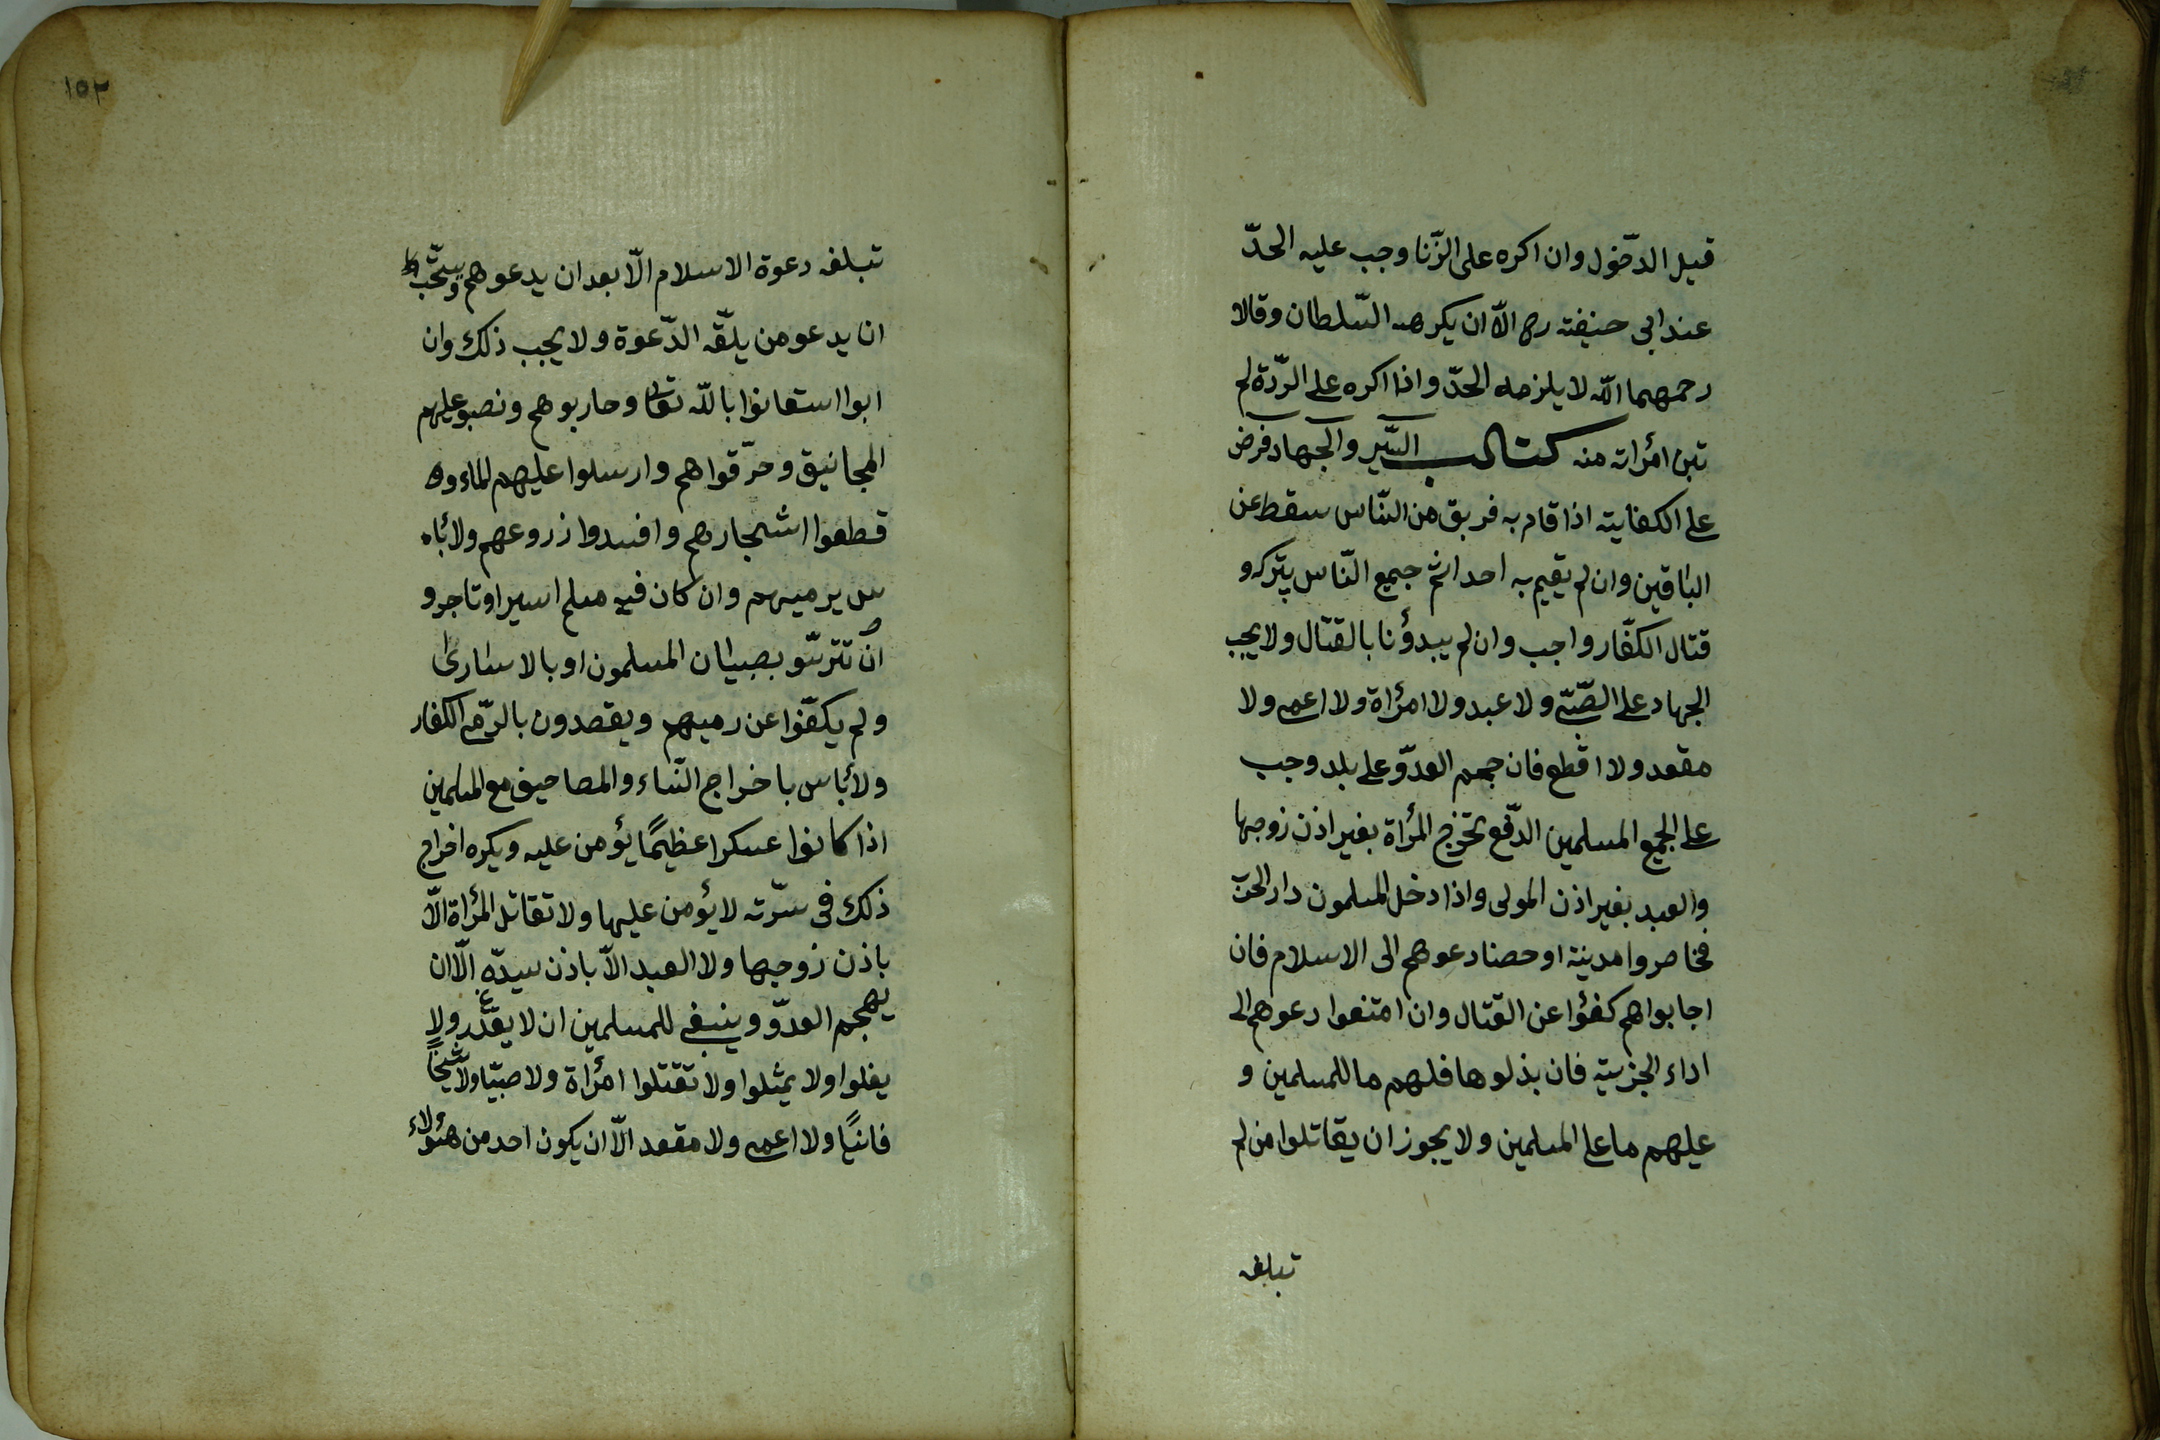 قبل الدخول وان اكره على الزّنا وجب عليه الحدّ
عند ابى حنيفته رح الاّ ان يكرهه السّلطان وقالا
رحمهما اللّه لا يلزمه الحدّ واذا اكره على الرّدة لم
تبن امرأته منه كتاب السّير والجهاد فرض
على الكفايته اذا قام به فريق من النّاس سقط عن
الباقين وان لم يقيم به احد اثم جميع النّاس بتركه و
قتال الكفّار واجب وان لم يبدؤنا بالقتال ولا يجب
الجهاد على الصّبّى ولا عبد ولا امرأة ولا اعمى ولا
مقعد ولا اقطع فان هجم العدوّ على بلد وجب
على الجميع المسلمين الدّفع تخرج المرأة بغير اذن زوجها
والعبد بغير اذن المولى واذا دخل المسلمون دار الحرب
فحاصروا مدينة او حصنا دعوهم الى الاسلام فان
اجابواهم كفؤا عن القتال وان امتنعوا دعوهم الى
اداء الجزيته فان بذلوها فلهم ما للمسلمين و
عليهم ما على المسلمين ولا يجوز ان يقاتلوا من لم
تبلغه
١٥٢
تبلغه دعوة الاسلام الاّ بعد ان يدعوهم ويستحّب
ان يدعو من يلّقه الدّعوة ولا يجب ذلك وان
ابوا استعانوا باللّه تعالى وحاربوهم ونصبو عليهم
المجانيق وحرّقواهم وارسلوا عليهم الماء و
قطعوا اشجارهم وافسدوا زروعهم ولا بأ
س يرميهم وان كان فيه مسلم اسير او تاجر و
ان تترسّو بصبيان المسلمون او بالاسارى
ولم يكفّوا عن رميهم ويقصدون بالرّمى الكفار
ولا بأس باخراج النّساء والمصاحيف مع المسلمين
اذا كانوا عسكرا عظيمًا يؤمن عليه ويكره اخراج
ذلك فى سرّته لا يؤمن عليها ولا تقاتل المرأة الاّ
باذن زوجها ولا العبد الاّ باذن سيدّه الاّ ان
يهجم العدوّ وينبغى للمسلمين ان لا يغدّر ولا
يغلوا ولا يمثلوا ولا تقتلوا امرأة ولا صبيّا ولا شيخًا
فانيًا ولا اعمى ولا مقعد الاّ ان يكون احد من هؤلاء